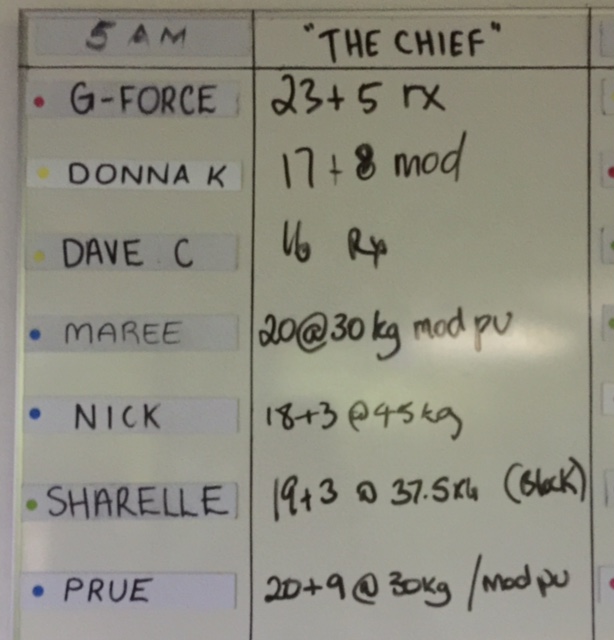 5 AM "THE CHIEF"
G-FORCE 23+5 rx
DONNA K 17+8 mod
DAVE C 16
MAREE 20@30kg mod pu
NICK 18+3 @45kg
SHARELLE 19+3 @ 37.5KG (Block)
PRUE 20+9 @ 30kg /mod pu